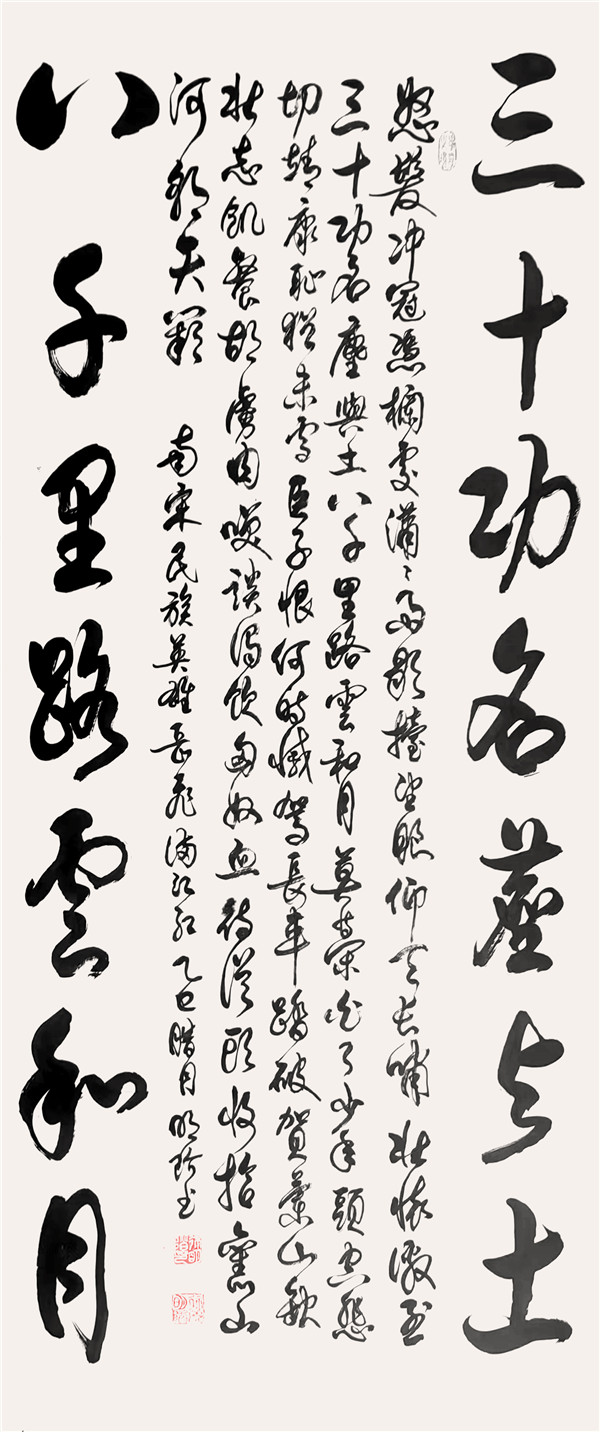 三十功名塵与土
怒髮冲冠憑欄處瀟〻雨歇擡望眼仰天长嘯壯懷激烈
三十功名塵與土八千里路雲和月莫等閑白了少年頭空悲
切靖康恥猶未雪臣子恨何時滅駕長車踏破賀蘭山缺
壯志飢餐胡虜肉笑談渴飲匈奴血待從頭收拾舊山
河朝天闕 南宋民族英雄岳飛滿江紅 乙巳腊月明珍书
八千里路雲和月